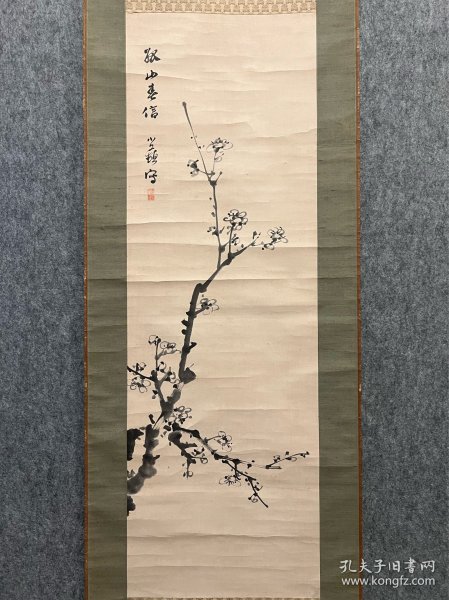 孤山春信
写
孔夫子旧书网
www.kongfz.com